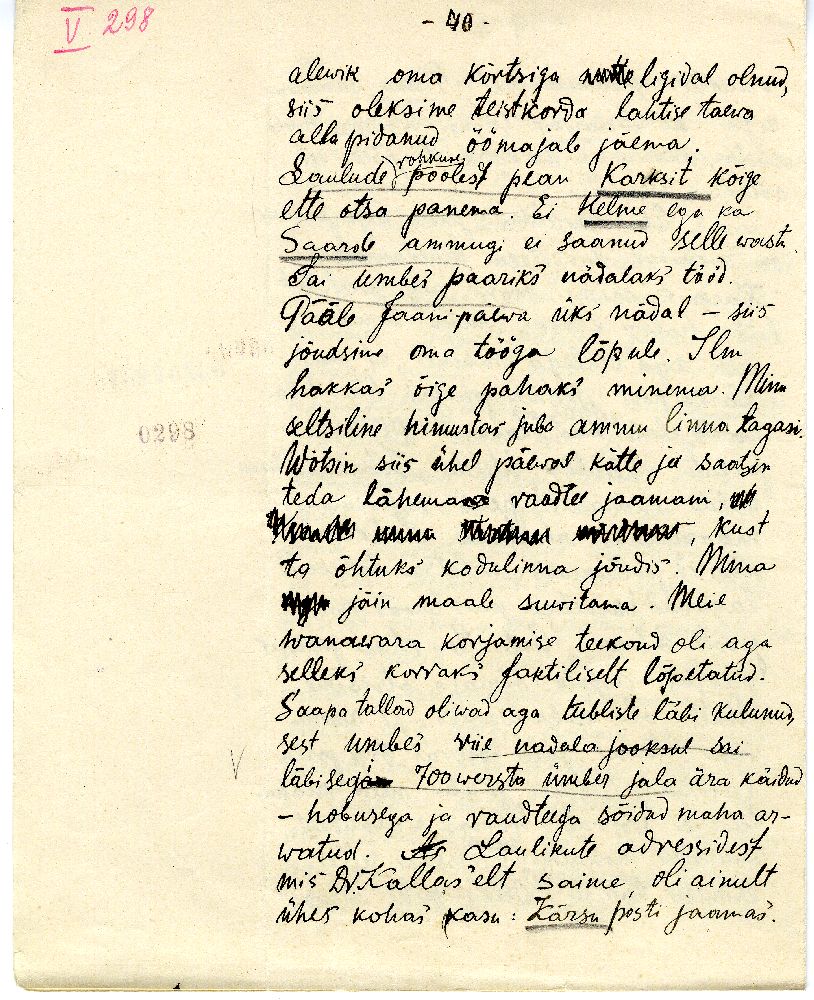 V 298
- 40 -
alewik oma kõrtsiga ligidal olnud,
siis oleksime teistkorda lahtise taewa
alla pidanud öömajale jäema.
Laulude rohkuse poolest pean Karksit kõige
ette otsa panema. Ei Helme ega ka
Saarde ammugi ei saanud selle wastu.
Sai umbes paariks nädalaks tööd.
Pääle Jaanipäewa üks nädal – siis
jõudsime oma tööga lõpule. Ilm
hakkas õige pahaks minema. Minu
seltsiline himustas juba ammu linna tagasi.
Wõtsin siis ühel päewal kätte ja saatsin
teda lähemase raudtee jaamani,
, kust
ta õhtuks kodulinna jõudis. Mina
jäin maale suwitama. Meie
wanawara korjamise teekond oli aga
selleks korraks faktiliselt lõpetatud.
Saapa tallad oliwad aga tubliste läbi kulunud,
sest umbes viie nadala jooksul sai
läbisegi 700 wersta ümber jala ära käidud
– hobusega ja raudteega sõidud maha ar-
watud. Laulikute adressidest
mis Dr. Kallas'elt saime, oli ainult
ühes kohas kasu: Kärsu posti jaamas.
0298